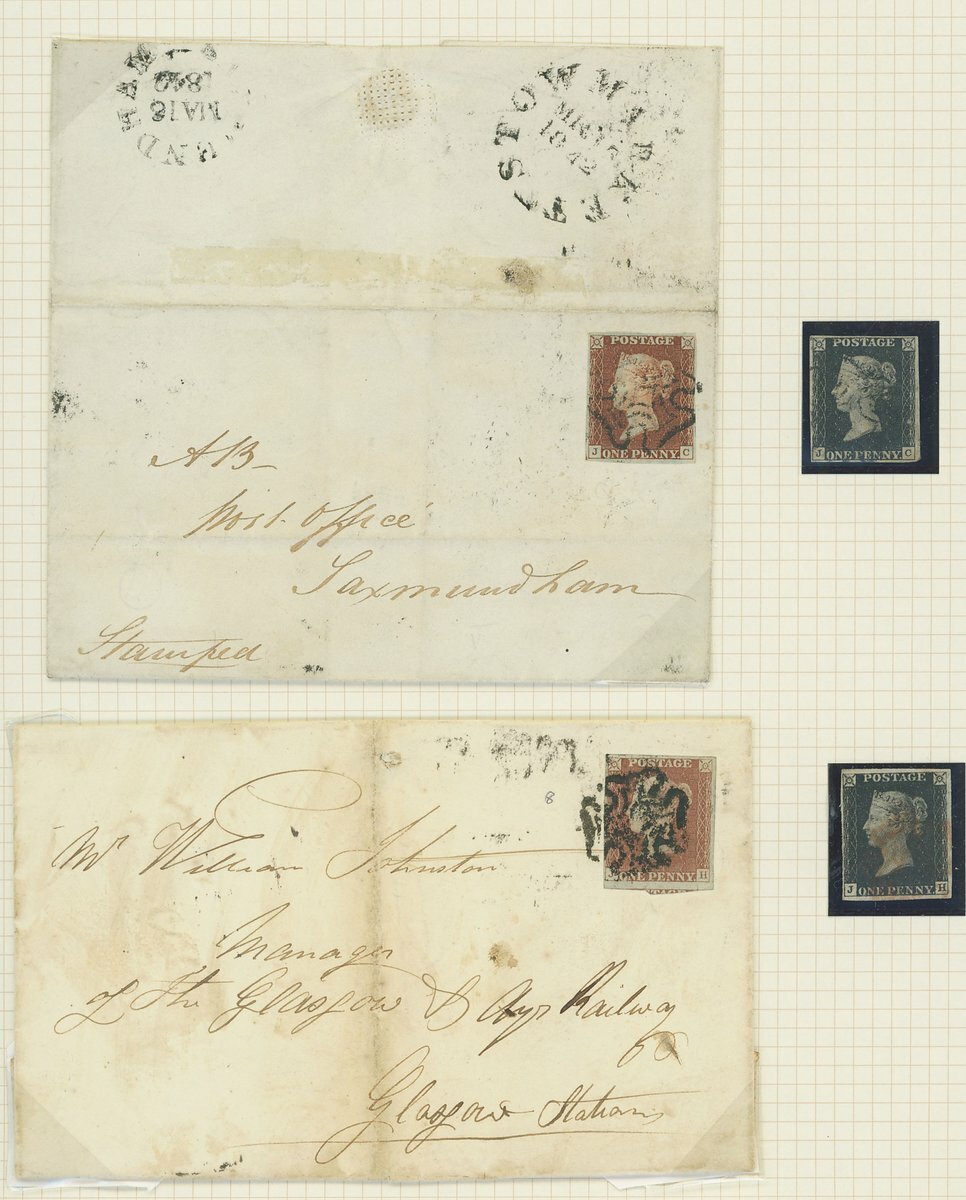 STOWMARKET
1842
MA18
1842
POSTAGE
J ONE PENNY C
POSTAGE
J ONE PENNY. C
AB-
Post. Office
Saxmundham
Stamped
POSTAGE
J ONE PENNY H
8
POSTAGE
J ONE PENNY. H
Mr William Johnston
Manager
of the Glasgow & Ayr Railway
Glasgow Station